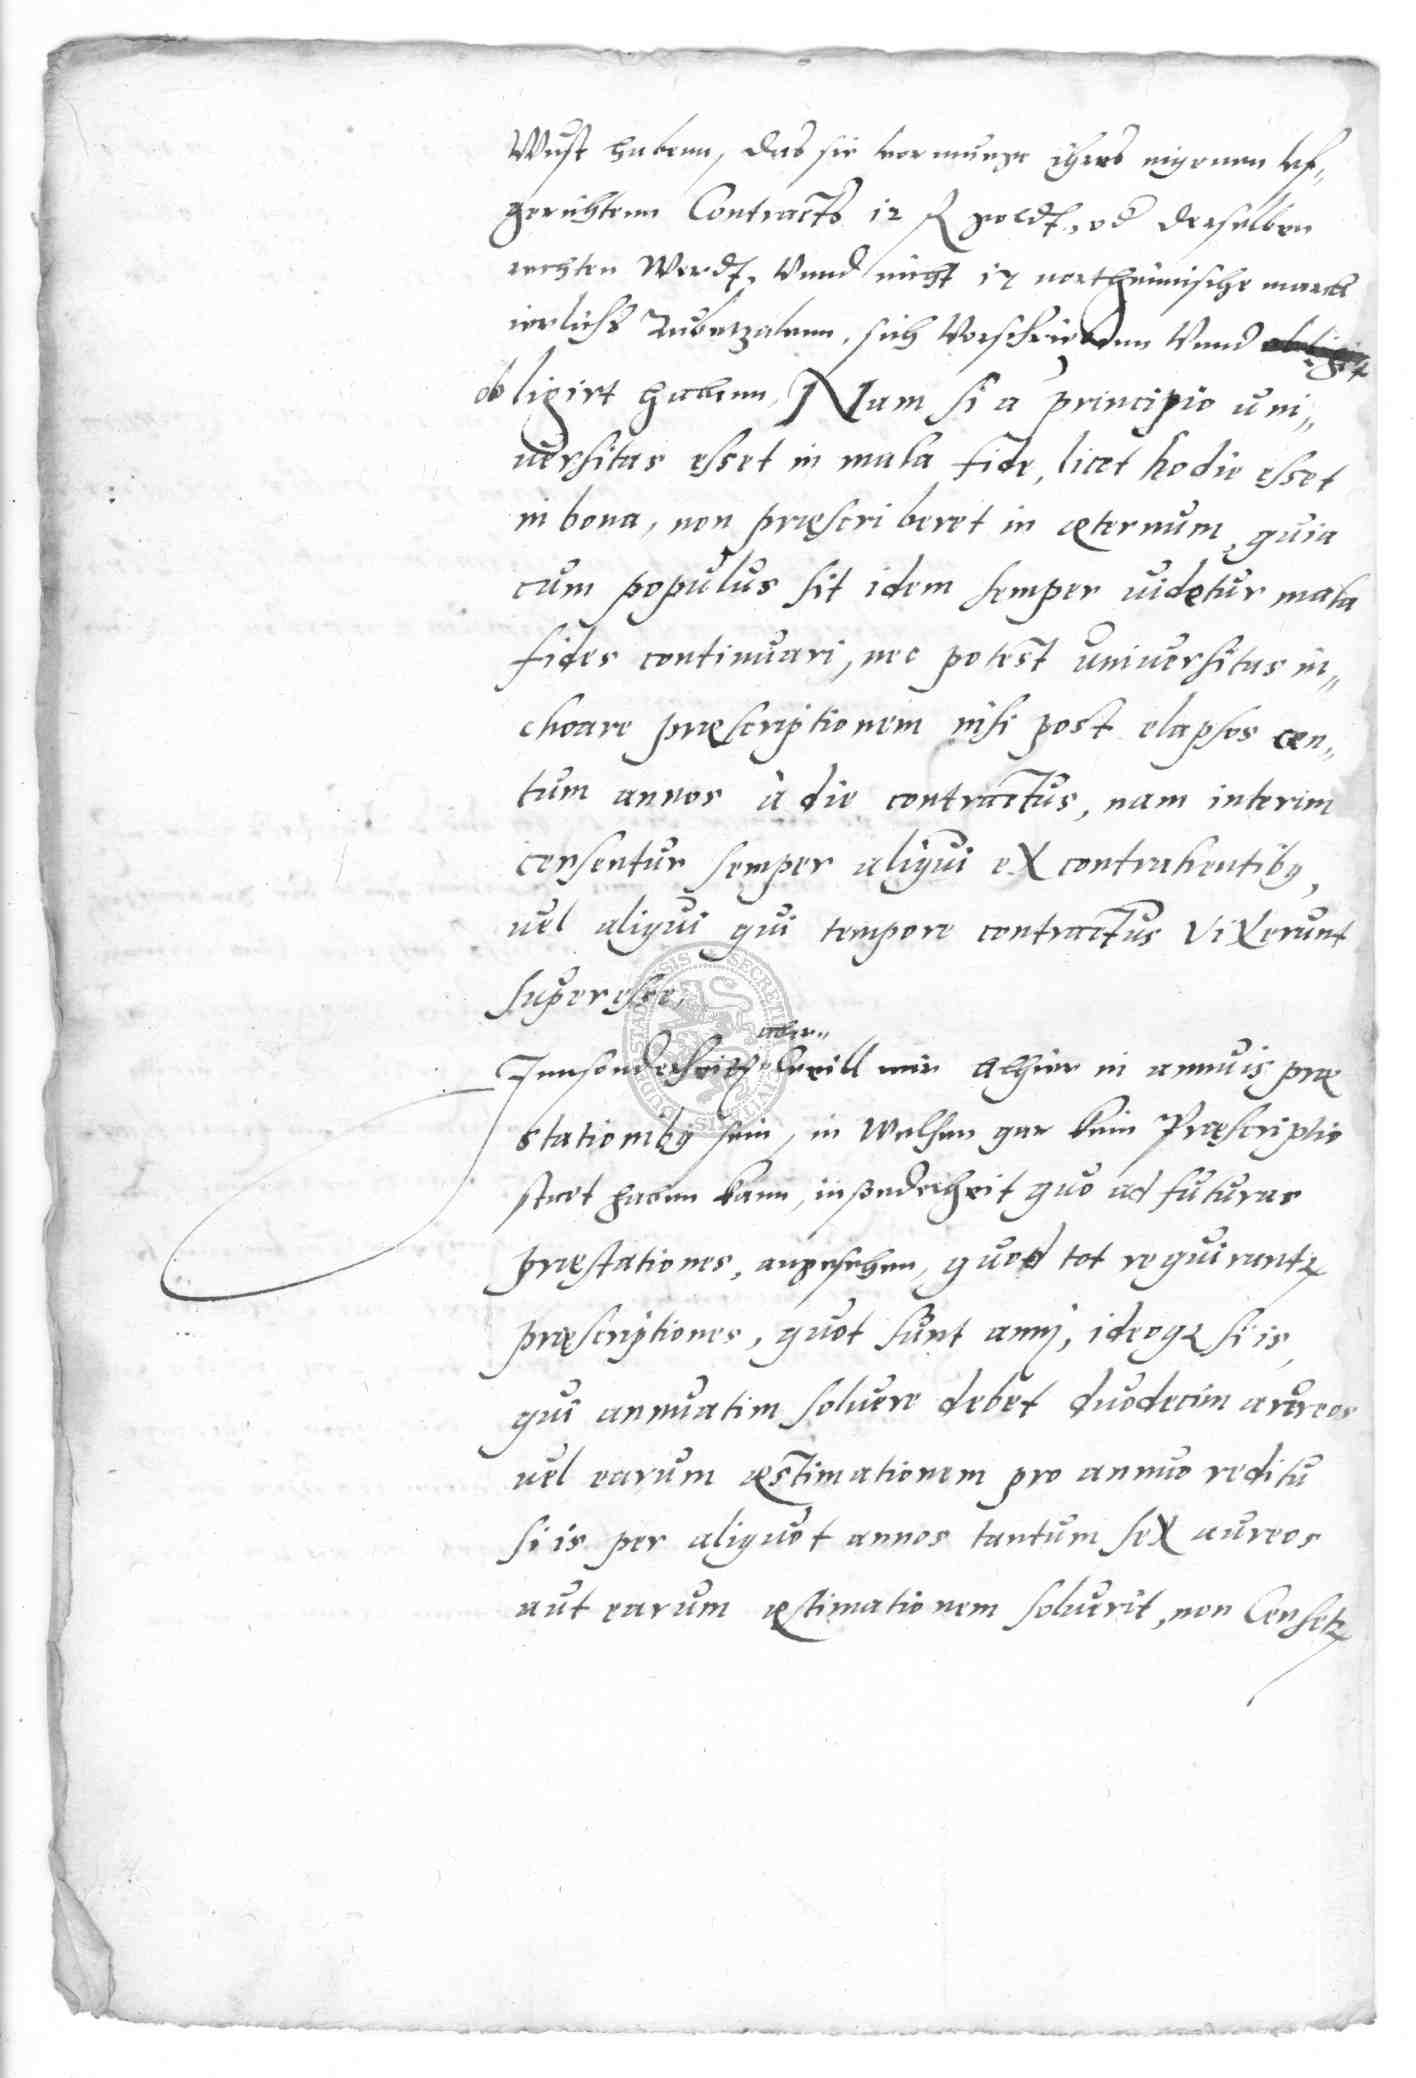 Wust habenn, das sie vormuge ihres eigenen vf„
gerichtenn Contracts 12 fl goldt, od derselben
rechten Werdt, Vnnd nicht 12 northeimische marck
ierlichs Zubetzalenn, sich Vorschriebenn Vnnd obligirt
obligirt habenn, Nam si a principio uni„
uersitas esset in mala fide, licet hodie esset
in bona, non præscriberet in æternum, quia
cum populus sit idem semper uidetur mala
fides continuari, nec potest Vniuersitas in„
choare præscriptionem nisi post elapsos cen„
tum annos à die contractus, nam interim
censentur semper aliqui ex contrahentibꝰ,
uel aliqui qui tempore contractus vixerunt
superesse.
Innsonderheitt aber„ will mir alhier in annuis præ
stationibꝰ sein, in Welchen gar kein Præscriptio
stadt haben kann, insonderheit quo ad futuras
præstationes, angesehen, quod tot requirantʳ
præscriptiones, quot sunt annj, ideoqꝫ si is,
qui annuatim soluere debet duodecim aureos
uel earum æstimationem pro annuo reditu
si is per aliquot annos tantum sex aureos
aut earum æstimationem soluerit, non Censetʳ